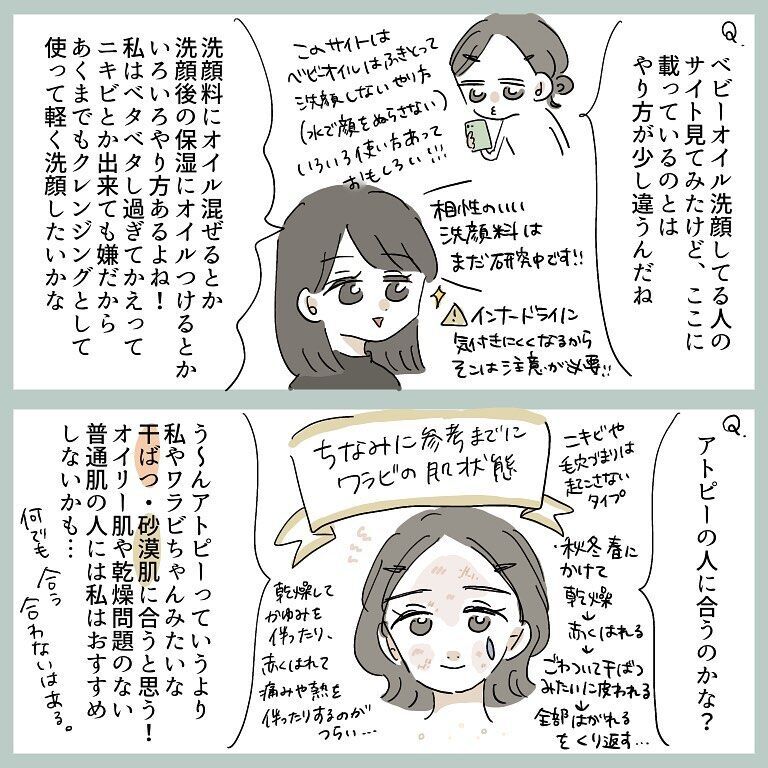 Q.
ベビーオイル洗顔してる人の
サイト見てみたけど、ここに
載っているのとは
やり方が少し違うんだね
このサイトは
ベビオイルはふきとって
洗顔しないやり方
(水で顔をぬらさない)
いろいろ使い方あって
おもしろい!!!
相性のいい
洗顔料は
まだ研究中です!!
⚠インナードライに
気付きにくくなるから
そこは注意が必要!!
洗顔料にオイル混ぜるとか
洗顔後の保湿にオイルつけるとか
いろいろやり方あるよね！
私はベタベタし過ぎてかえって
ニキビとか出来ても嫌だから
あくまでもクレンジングとして
使って軽く洗顔したいかな
Q.
アトピーの人に合うのかな？
ちなみに参考までに
ワラビの肌状態
ニキビや
毛穴づまりは
起こさない
タイプ
・秋冬春に
かけて
乾燥
↓
赤くはれる
↓
ごわついて干ばつ
みたいに皮われる
↓
全部はがれる
をくり返す…
乾燥して
かゆみを
伴ったり、
赤くはれて
痛みや熱を
伴ったりするのが
つらい…
う〜んアトピーっていうより
私やワラビちゃんみたいな
干ばつ・砂漠肌に合うと思う！
オイリー肌や乾燥問題のない
普通肌の人には私はおすすめ
しないかも…
何でも合う
合わないはある。